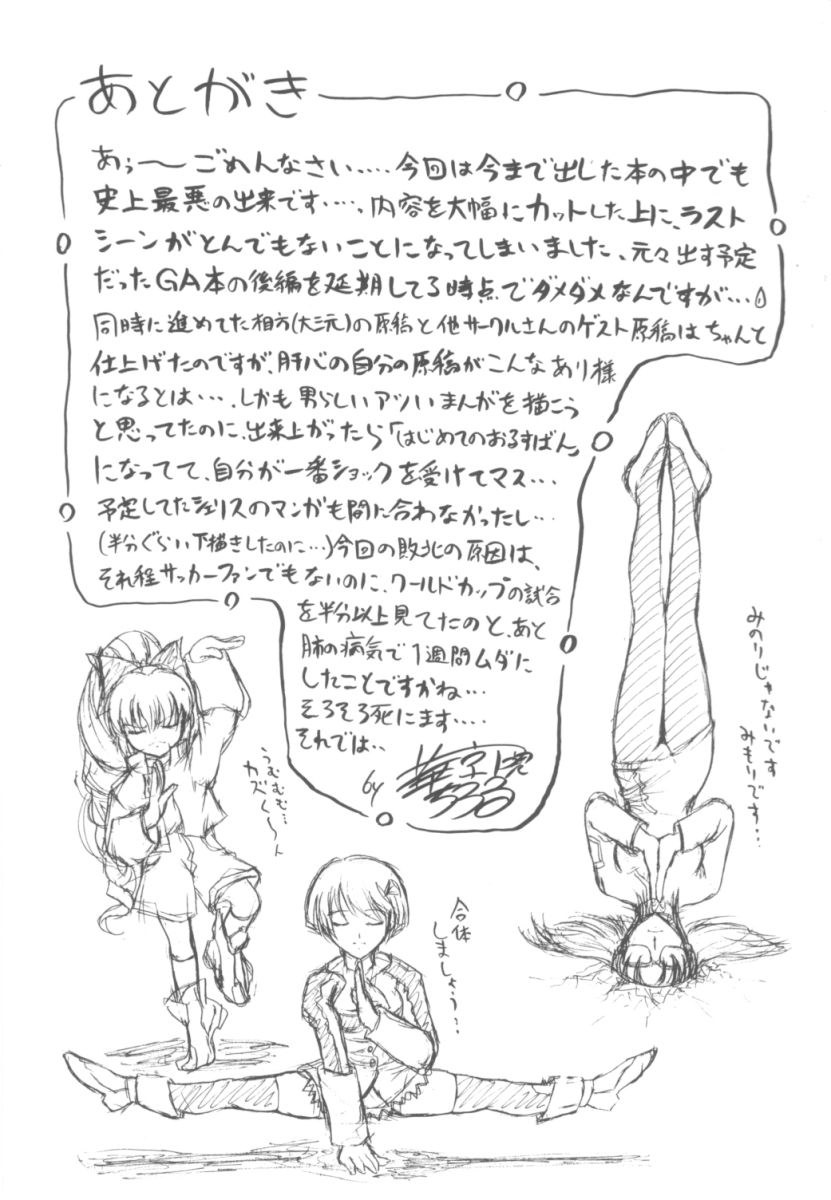 あとがき
あぅ〜ごめんなさい‥‥今回は今まで出した本の中でも
史上最悪の出来です‥‥、内容を大幅にカットした上に、ラスト
シーンがとんでもないことになってしまいました、元々出す予定
だったGA本の後編を延期してる時点でダメダメなんですが‥‥
同時に進めてた相方(大三元)の原稿と他サークルさんのゲスト原稿はちゃんと
仕上げたのですが、肝心の自分の原稿がこんなあり様
になるとは‥‥、しかも男らしいアツいまんがを描こう
と思ってたのに、出来上がったら「はじめてのおるすばん」
になってて、自分が一番ショックを受けてマス‥‥
予定してたシェリスのマンガも間に合わなかったし‥‥
(半分ぐらい下描きしたのに‥‥)今回の敗北の原因は、
それ程サッカーファンでもないのに、ワールドカップの試合
を半分以上見てたのと、あと
肺の病気で1週間ムダに
したことですかね‥‥
そろそろ死にます‥‥
それでは‥
by
うむむむ‥
カズく〜ん
合体
しましょう‥?
みのりじゃないです
みもりです‥